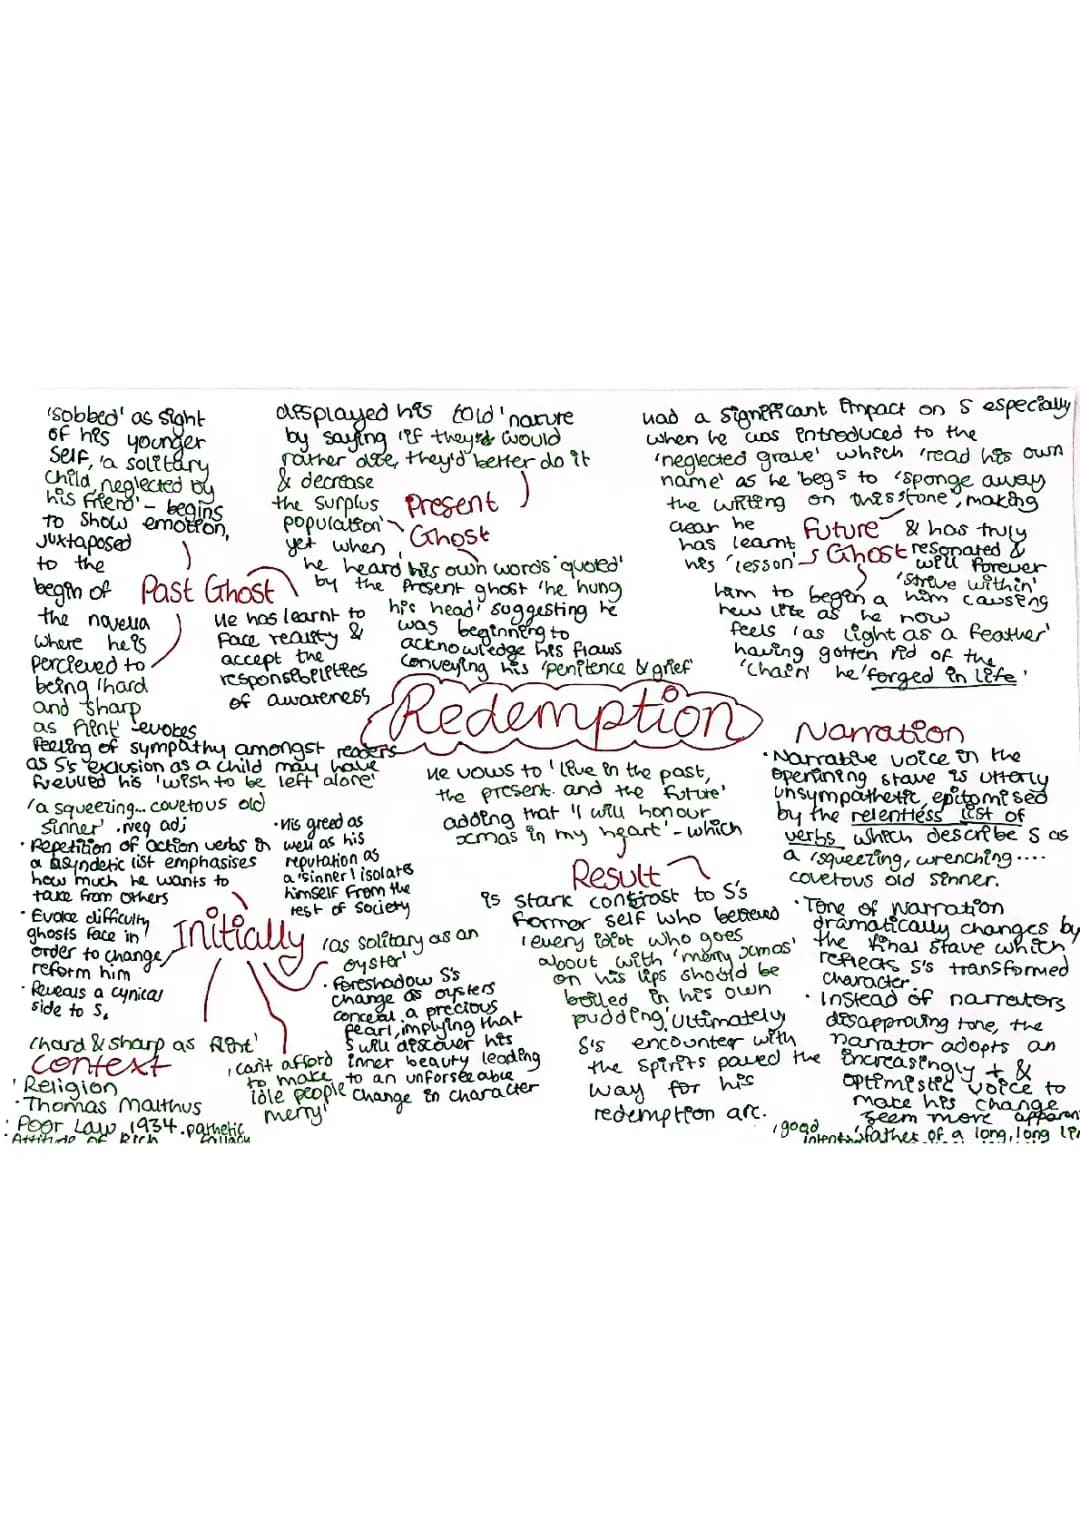 'sobbed' as sight
of his younger
self, 'a solitary
child, neglected by
his friend' - begins
to show emotion,
juxtaposed
to the
begin of
the novella
where he is
percieved to
being 'hard
and sharp
as flint' - evokes
feeling of sympathy amongst readers
as S's exclusion as a child may have
fuelled his 'wish to be left alone'
Past Ghost
He has learnt to
face reality &
accept the
responsibilities
of awareness
displayed his cold' nature
by saying 'if they'd would
rather die, they'd better do it
& decrease
the surplus
population'
yet when
Present
Ghost
he heard his own words 'quoted'
by the Present ghost 'he hung
his head' suggesting he
was beginning to
acknowledge his flaws
conveying his 'penitence & grief'
had a significant impact on S especially
when he was introduced to the
'neglected grave' which 'read his own
name' as he 'begs to 'sponge away
the writing on this stone', making
clear he
has learnt
his 'lesson'
Future
Ghost
& has truly
resonated &
will forever
'strive within'
him causing
him to begin a
new life as he now
feels 'as light as a feather'
having gotten rid of the
'chain' he 'forged in life'
Redemption
'a squeezing... covetous old
sinner' . neg adj
• Repetition of action verbs in
a asyndetic list emphasises
how much he wants to
take from others
• Evoke difficulty
ghosts face in
order to change/
reform him
• Reveals a cynical
side to S.
• His greed as
well as his
reputation as
a 'sinner' isolate
himself from the
rest of society
Initially
'as solitary as an
oyster'
• foreshadow S's
change as oysters
conceal a precious
pearl, implying that
S will discover his
inner beauty leading
to an unforseeable
change in character
'hard & sharp as flint'
'can't afford
to make
idle people
merry'
Context
' Religion
• Thomas Malthus
: Poor Law 1934 . pathetic
fallacy
Attitude of Rich
He vows to 'live in the past,
the present. and the future'
adding that 'I will honour
xmas in my heart' - which
Result
is stark contrast to S's
former self who believed
'every idiot who goes
about with 'merry xmas'
on his lips should be
boiled in his own
pudding'. Ultimately
S's encounter with
the spirits paved the
way for his
redemption arc.
Narration
• Narrative voice in the
openining stave is utterly
unsympathetic, epitomised
by the relentless list of
verbs which describe S as
a 'squeezing, wrenching ....
covetous old sinner.
• Tone of Narration
dramatically changes by
the final stave which
reflects S's transformed
character.
• Instead of narrators
disapproving tone, the
narrator adopts an
increasingly + &
optimistic voice to
make his change
seem more apparen
'good
'father of a long, long li